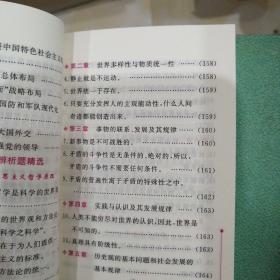 中国特色社会主义
总体布局
面"战略布局
国防和军队现代化
大国外交
强党的领导
辨析题精选
思主义哲学原理
学是科学的世界
的世界观和方法
科学之科学"
在于为人们追求
式的世界观
方法论的统一
第二章 世界多样性与物质统一性 (158)
4. 静止就是不运动。 (158)
5. 世界统一于存在。 (158)
6. 只要充分发挥人的主观能动性,什么人间
奇迹都能创造出来。 (159)
第三章 事物的联系、发展及其规律 (159)
7. 新事物是不可战胜的。 (159)
8. 矛盾的斗争性是无条件的,绝对的,所以,
矛盾的斗争性不需要任何条件。 (160)
9. 矛盾的普遍性大于矛盾的特殊性之中。
(161)
第四章 实践与认识及其发展规律 (161)
10. 人类不能穷尽对世界的认识,因此,世界
是不可知的。 (162)
11. 真理具有阶级性。 (163)
第五章 历史观的基本问题和社会发展的
基本规律 (164)